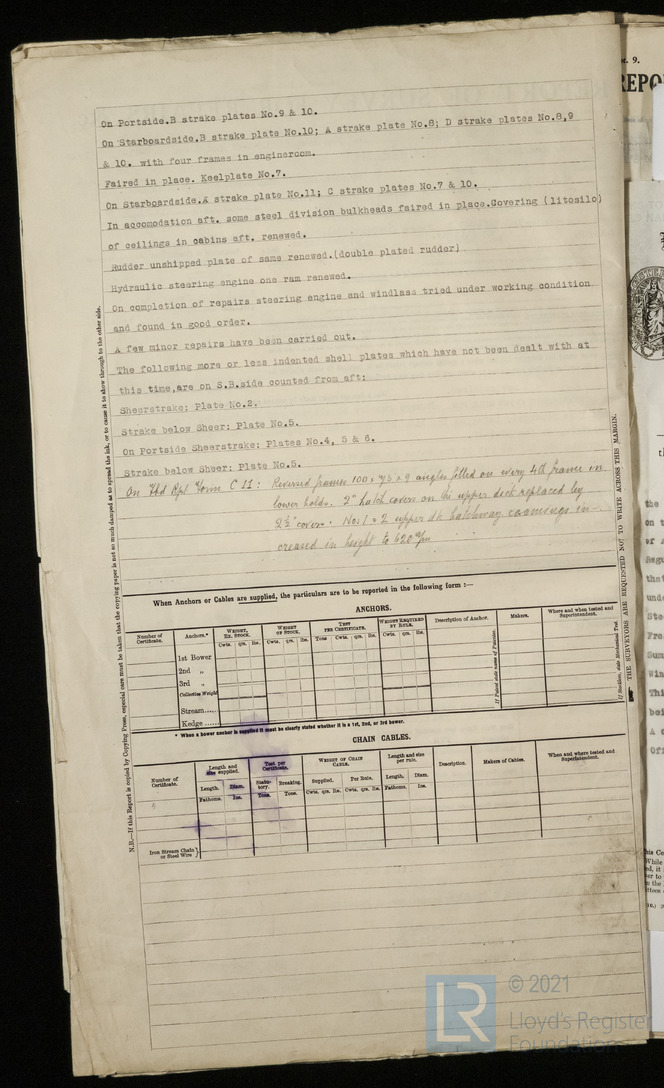 On Portside.B strake plates No.9 & 10.
On Starboardside.B strake plate No.10; A strake plate No.8; D strake plates No.8,9
& 10. with four frames in engineroom.
Faired in place. Keelplate No.7.
On Starboardside.A strake plate No.11; C strake plates No.7 & 10.
In accomodation aft. some steel division bulkheads faired in place.Covering (litosilo)
of ceilings in cabins aft. renewed.
Rudder unshipped plate of same renewed.(double plated rudder)
Hydraulic steering engine one ram renewed.
On completion of repairs steering engine and windlass tried under working condition
and found in good order.
A few minor repairs have been carried out.
The following more or less indented shell plates which have not been dealt with at
this time,are on S.B.side counted from aft:
Sheerstrake; Plate No.2.
Strake below Sheer; Plate No.5.
On Portside Sheerstrake: Plates No.4, 5 & 6.
Strake below Sheer: Plate No.5.
On Fbd Rpt Form C 11: Reversed frames 100 x 75 x 9 angles fitted on every 4th frame in
lower holds. 2" hatch covers on upper deck replaced by
2½" covers. Nos 1 & 2 upper dk hatchway coamings in-
creased in height to 620 m/m
When Anchors or Cables are supplied, the particulars are to be reported in the following form :—
ANCHORS.
Number of Certificate.
Anchors.*
WEIGHT, EX. STOCK.
WEIGHT OF STOCK.
TEST PER CERTIFICATE.
WEIGHT REQUIRED BY RULE.
Description of Anchor.
Makers.
Where and when tested and Superintendent.
Cwts. qrs. lbs.
Cwts. qrs. lbs.
Tons Cwts. qrs. lbs.
Cwts. qrs. lbs.
1st Bower
2nd „
3rd „
Collective Weight
Stream
Kedge
If Patent state name of Patentee.
If Stockless, state Mechanical Test.
* When a bower anchor is supplied it must be clearly stated whether it is a 1st, 2nd, or 3rd bower.
CHAIN CABLES.
Number of Certificate.
Length and size supplied.
Test per Certificate.
WEIGHT OF CHAIN CABLE.
Length and size per rule.
Description.
Makers of Cables.
When and where tested and Superintendent.
Length. Diam.
Statutory. Breaking.
Supplied. Per Rule.
Length. Diam.
Fathoms. Ins.
Tons. Tons.
Cwts. qrs. lbs. Cwts. qrs. lbs.
Fathoms. Ins.
Iron Stream Chain or Steel Wire
N.B.—If this Report is copied by Copying Press, especial care must be taken that the copying paper is not so much damped as to spread the ink, or to cause it to show through to the other side.
THE SURVEYORS ARE REQUESTED NOT TO WRITE ACROSS THIS MARGIN.
LR
© 2021
Lloyd's Register
Foundation